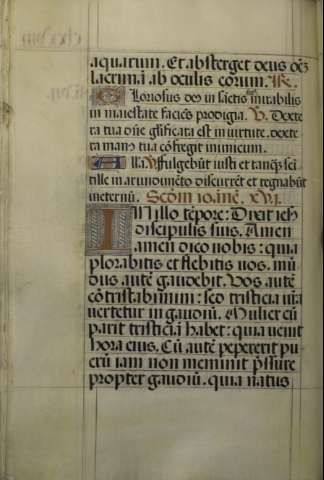 aquarum. Et absterget deus oēz
lacrimā ab oculis eorum. R.
Gloriosus deus in sāctis suis mirabilis
in maiestate faciēs prodigia. V. Dexte
ra tua dn̄e glificata est in uirtute. dexte
ra manꝰ tua cōfregit inimicum.
Alla V. Fulgebūt iusti et tanqͣ sci
tille in arundineto discurrēt et regnabūt
ineternū. Scdm ioannē. xvi.
In illo tēpore: Dixit ieh̄s
discipulis suis. Amen
amen dico uobis: quia
plorabitis et flebitis uos. mū
dus autē gaudebit. Vos autē
cōtristabimini: sed tristicia ur̄a
uertetur in gaudiū. Mulier cū
parit tristiciā habet: quia uenit
hora eius. Cū autē pepererit pu
erū iam non meminit p̄ssure
propter gaudiū. quia natus